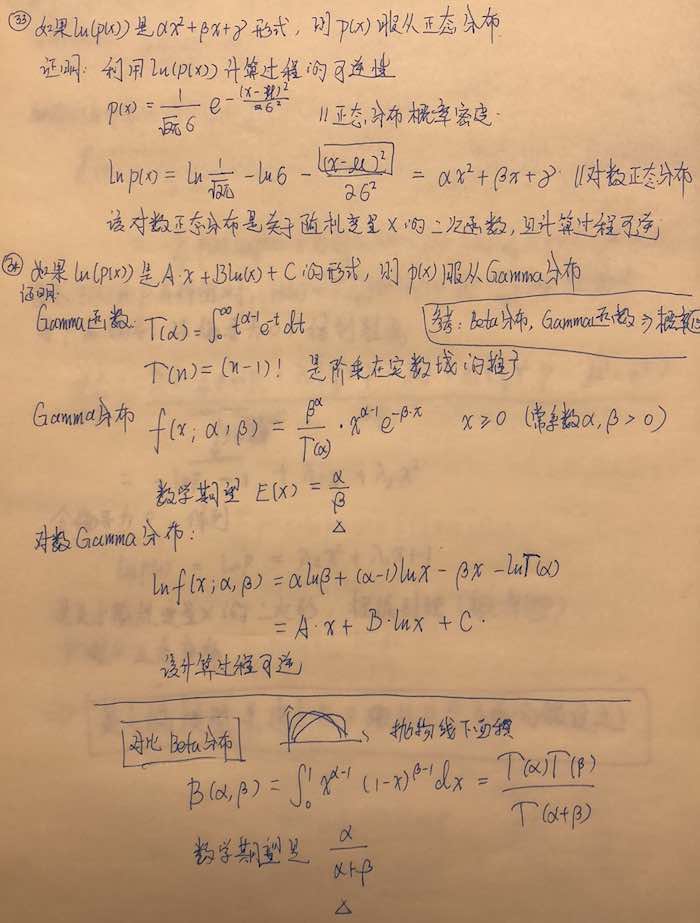 ㉝ 如果ln(p(x))是αx²+βx+γ形式，则p(x)服从正态分布
证明：利用ln(p(x))计算过程的可逆性
p(x) = \frac{1}{\sqrt{2π}σ} e^{-\frac{(x-μ)²}{2σ²}} //正态分布概率密度.
ln p(x) = ln\frac{1}{\sqrt{2π}} - lnσ - \frac{(x-μ)²}{2σ²} = αx²+βx+γ. //对数正态分布
该对数正态分布是关于随机变量X的二次函数，且计算过程可逆
㉞ 如果ln(p(x))是A·x+Bln(x)+C的形式，则p(x)服从Gamma分布
证明:
Gamma函数: Γ(α) = ∫_0^∞ t^{α-1}e^{-t}dt
Beta分布, Gamma函数 ⇒ 概率
Γ(n) = (n-1)! 是阶乘在实数域的推广
Gamma分布 f(x; α, β) = \frac{β^α}{Γ(α)} · x^{α-1}e^{-β·x} x≥0 (常系数α, β>0)
数学期望 E(x) = \frac{α}{β}
△
对数Gamma分布:
ln f(x; α, β) = αlnβ + (α-1)lnx - βx - lnΓ(α)
= A·x + B·lnx + C.
该计算过程可逆
对比Beta分布 抛物线下面积
B(α, β) = ∫_0^1 x^{α-1} (1-x)^{β-1} dx = \frac{Γ(α)Γ(β)}{Γ(α+β)}
数学期望是 \frac{α}{α+β}
△